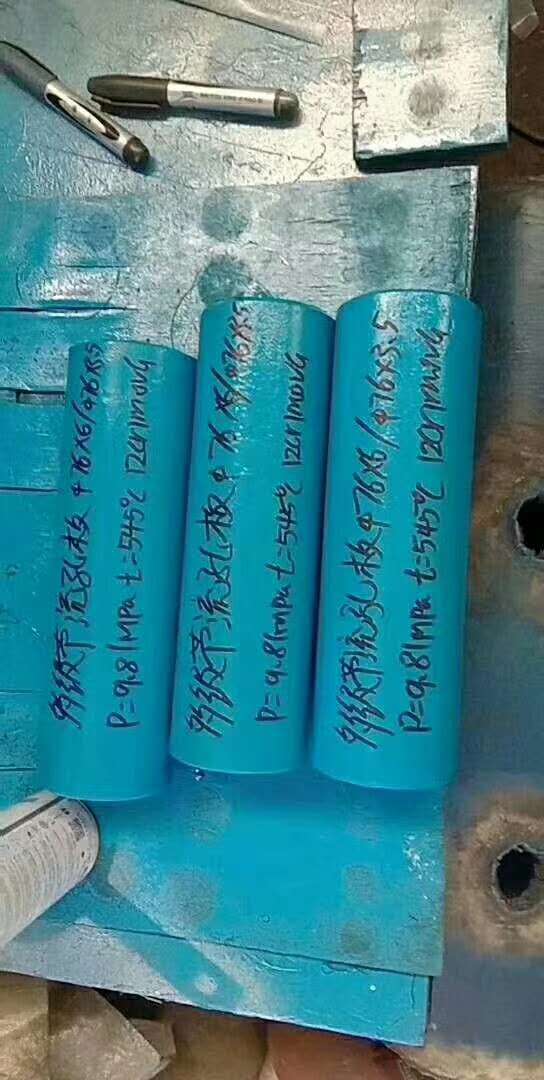 多级节流孔板 φ76×6/φ76×5.5
P=9.81MPa t=545℃ 12Cr1MoVG
多级节流孔板 φ76×6/φ76×5.5
P=9.81MPa t=545℃ 12Cr1MoVG
多级节流孔板 φ76×6/φ76×5.5
P=9.81MPa t=545℃ 12Cr1MoVG